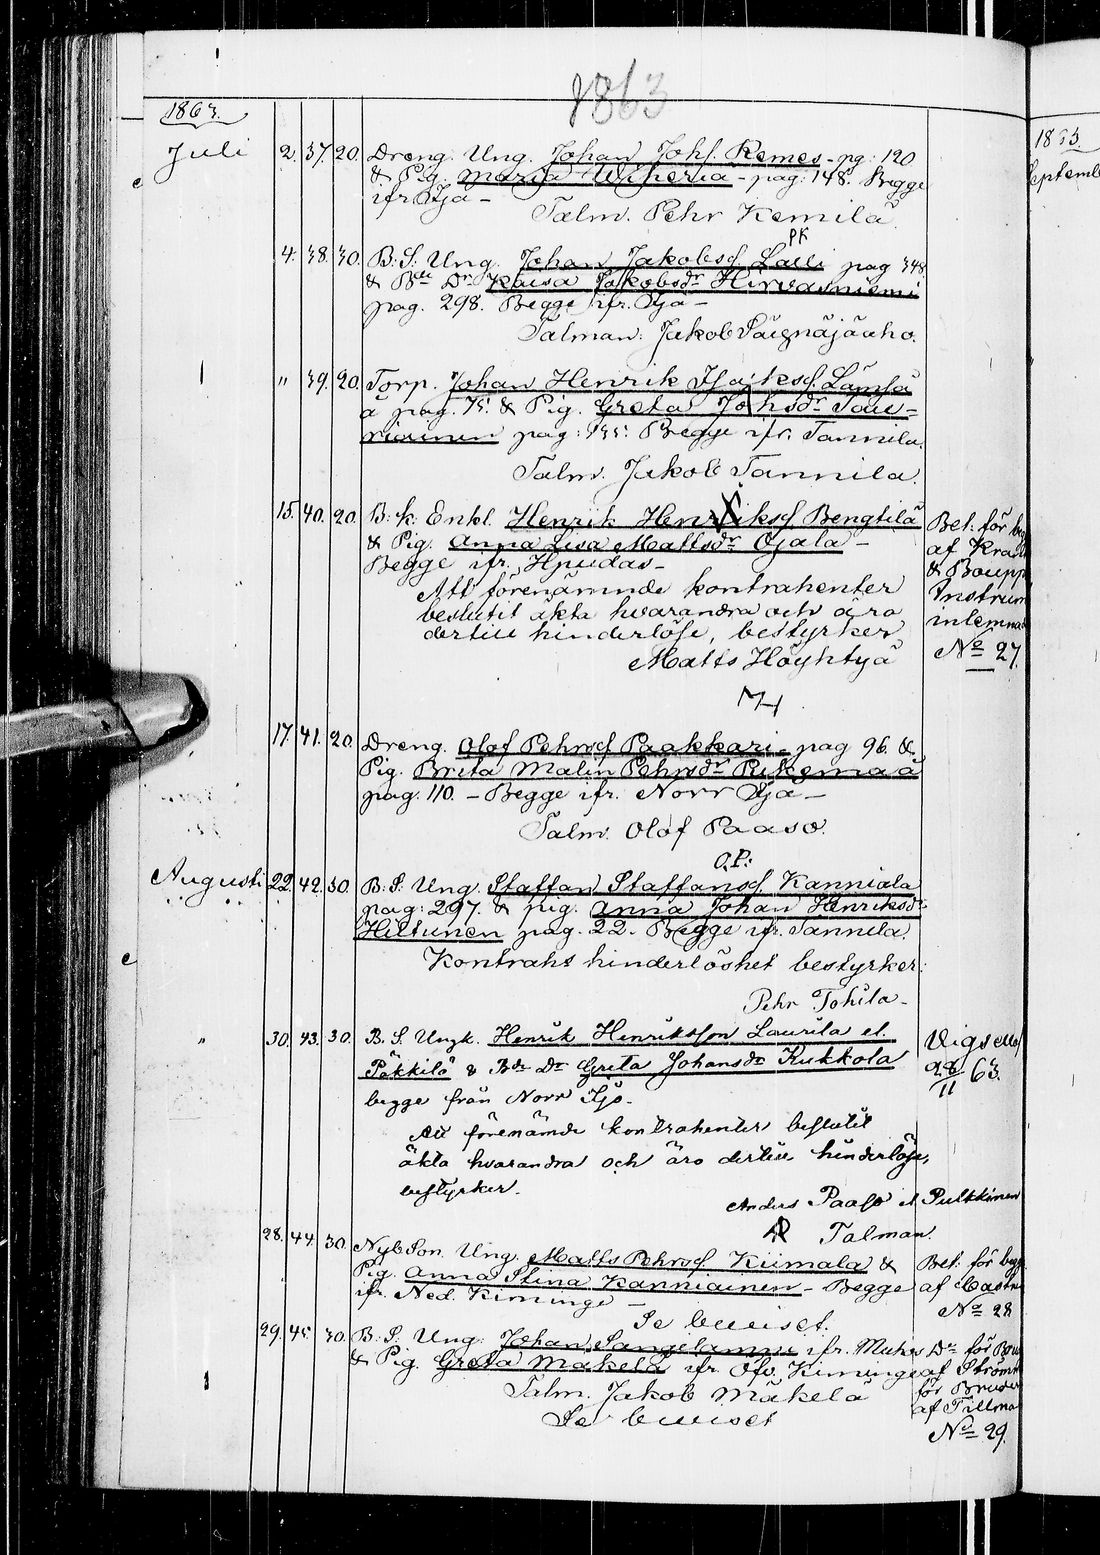 1863
1863.
Juli 2. 37. 20. Dreng. Ung. Johan Johs. Remes - pg: 120
& Pig. Maria - pag: 148. Begge
ifr Ijo -
Talm. Pehr Kemilä
PK
4. 38. 30. B: S: Ung. Johan Jakobsf. Lalli pag 348
& Bde Dr Kaisa Jakobsdr Hirvasniemi
pag. 298. Begge ifr. Ijo -
Talman: Jakob
" 39. 20. Torp. Johan Henrik Isaiksf. Lämsä
à pag. 75. & Pig. Greta Johsdr Tau-
riainen pag: 155: Begge ifr. Tannila.
Talm. Jakob Tannila.
15. 40. 20. B: k: Enkl. Henrik Henriksf Bengtilä
& Pig. Anna Lisa Mattsdr Ojala -
Begge ifr. Hpudas -
Att förenämnde kontrahenter
beslutit äkta hvarandra och äro
dertill hinderlöse, bestyrker
Matts Höyhtyä
MH
Bet. för
af
&Boupp
Instrum
inlemna
No 27.
17. 41. 20. Dreng. Olof Pehrsf Paakkari - pag 96. &
Pig. Brita Malin Pehrsdr
pag. 110. - Begge ifr. Norr Ijo -
Talm. Olof Paaso.
O.P:
Augusti 22. 42. 30. B: S: Ung. Staffan Staffansf. Kanniala
pag: 297. & pig. Anna Johan Henriksdr
Hiltunen pag. 22. Begge ifr. Tannila.
Kontraht hinderlöshet bestyrker:
Pehr Tohila -
" 30. 43. 30. B. S. Ungk. Henrik Henriksson Laurila el.
Päkkilä & Bde Dr Greta Johansdr Kukkola
begge från Norr Ijo.
Att förenämde kontrahenter beslutit
äkta hvarandra och äro dertill hinderlöse,
bestyrker.
Anders Paaso el Pulkkinen
AP Talman.
Vigde
28/11 63.
28. 44. 30. Nyb Son. Ung. Matts Pehrsf Kiimala &
Pig. Anna Stina Kanniainen - Begge
ifr. Ned. Kiminge -
Se beviset.
Bet. för
af Castre
No 28
29. 45. 30. B: S: Ung: Johan Sangelamni ifr. Muhos
& Pig. Greta Mäkelä ifr Öfv. Kiminge
Talm. Jakob Mäkelä
Se beviset
Do för
af Ström
för Brude
af Tillma
No 29.
1863.
Septemb